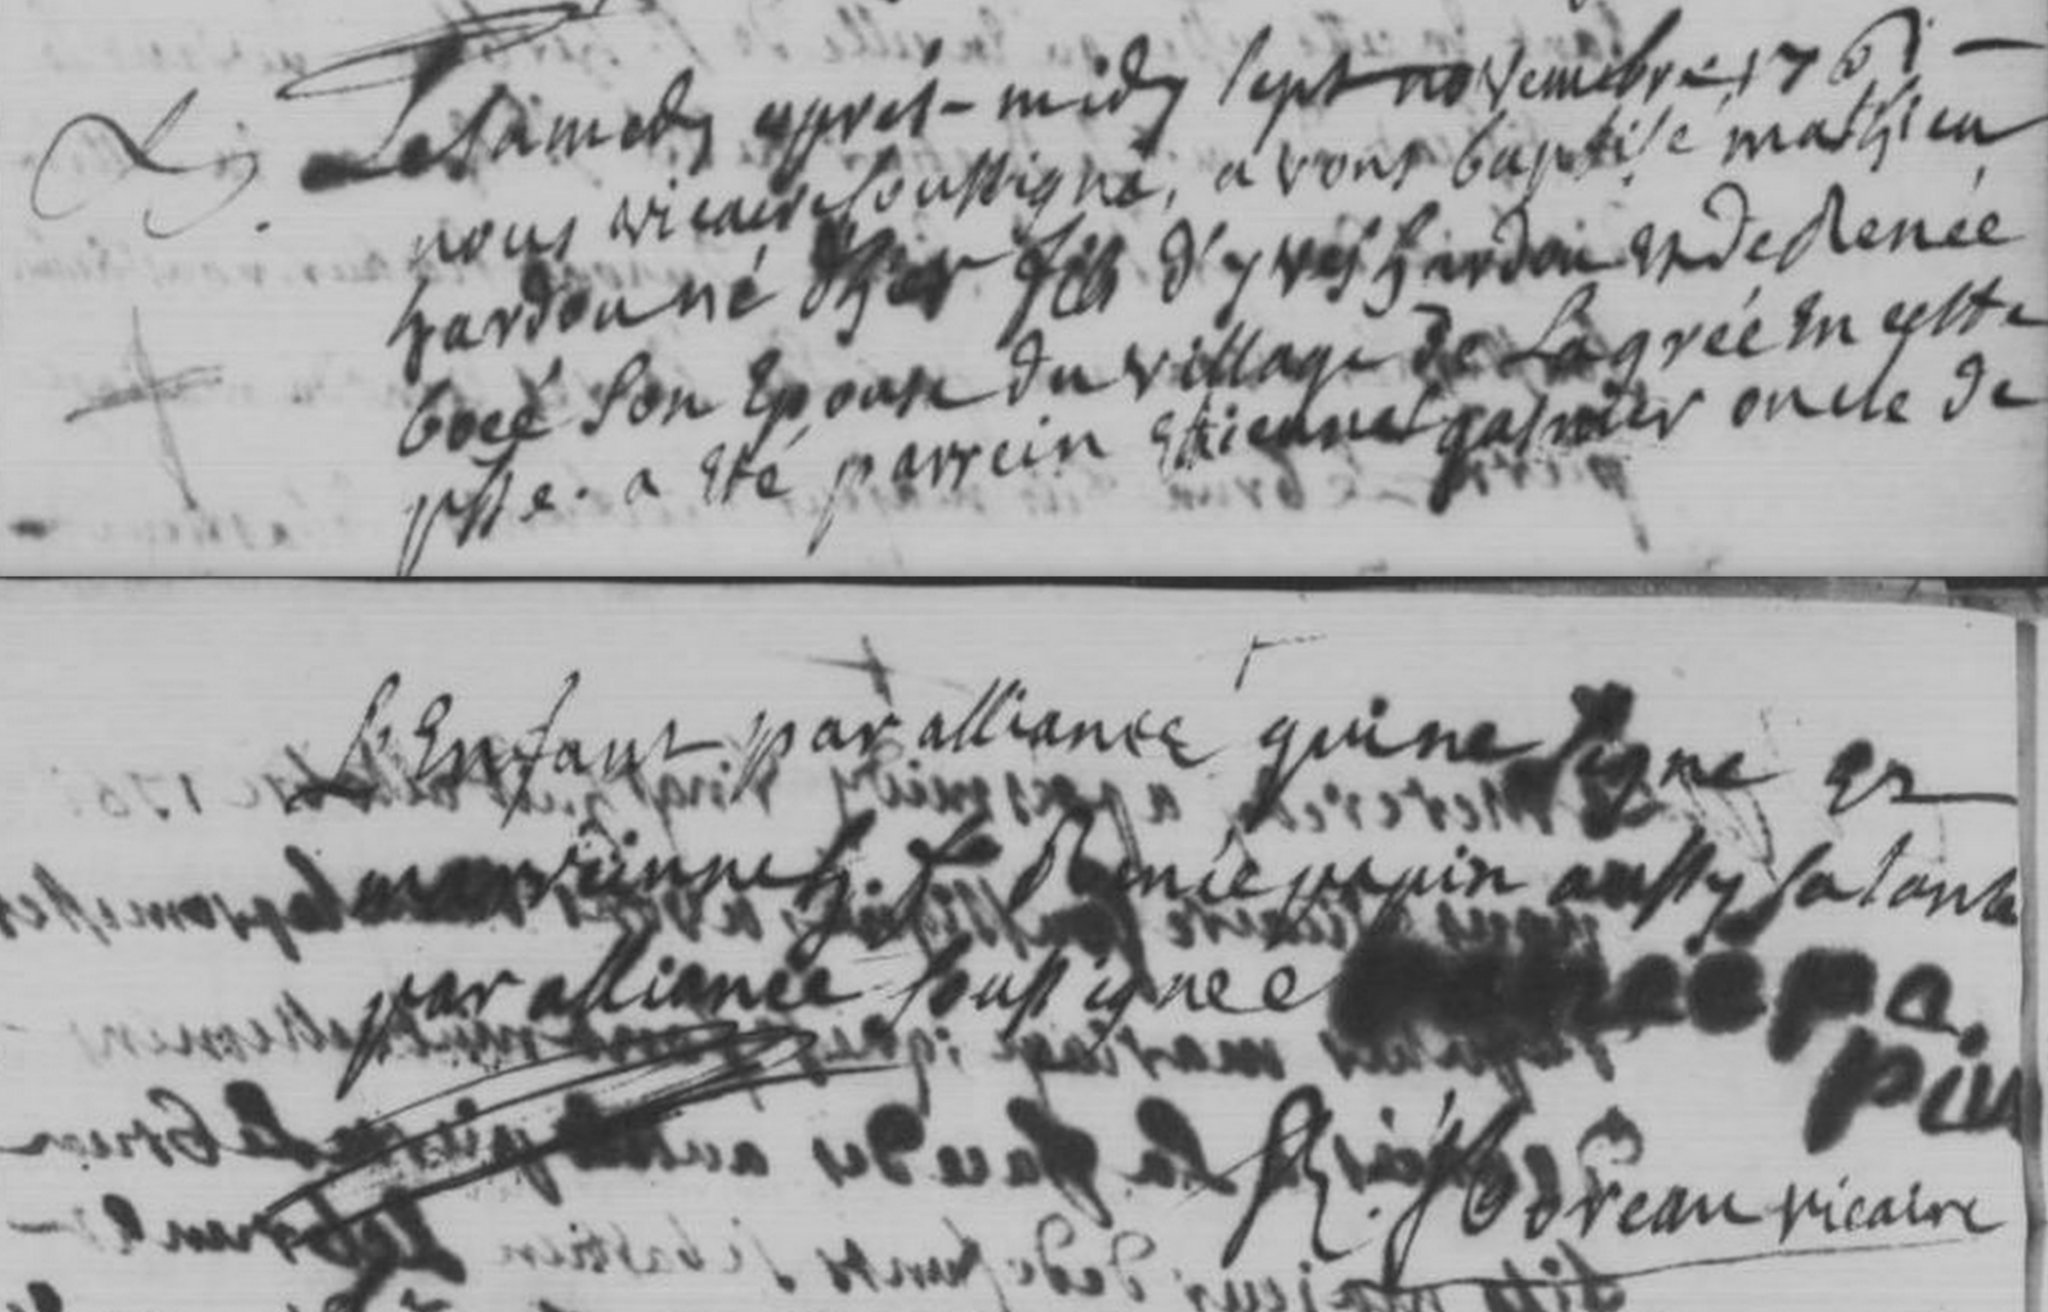 Le samedy apprés-midy sept novemebre 1761
nous vicaire soussigné, avons baptisé mathieu
hardou né d'hier fils d'yves hardou et de Renée
bocé son epouse du village de Lagrée en cette
psse. a eté parrein etienne gasnier oncle de
L'Enfant par alliance qui ne signe et
marrinne h. Renée papin aussy sa tante
par alliance soussignée
papin
R. J. Boreau vicaire